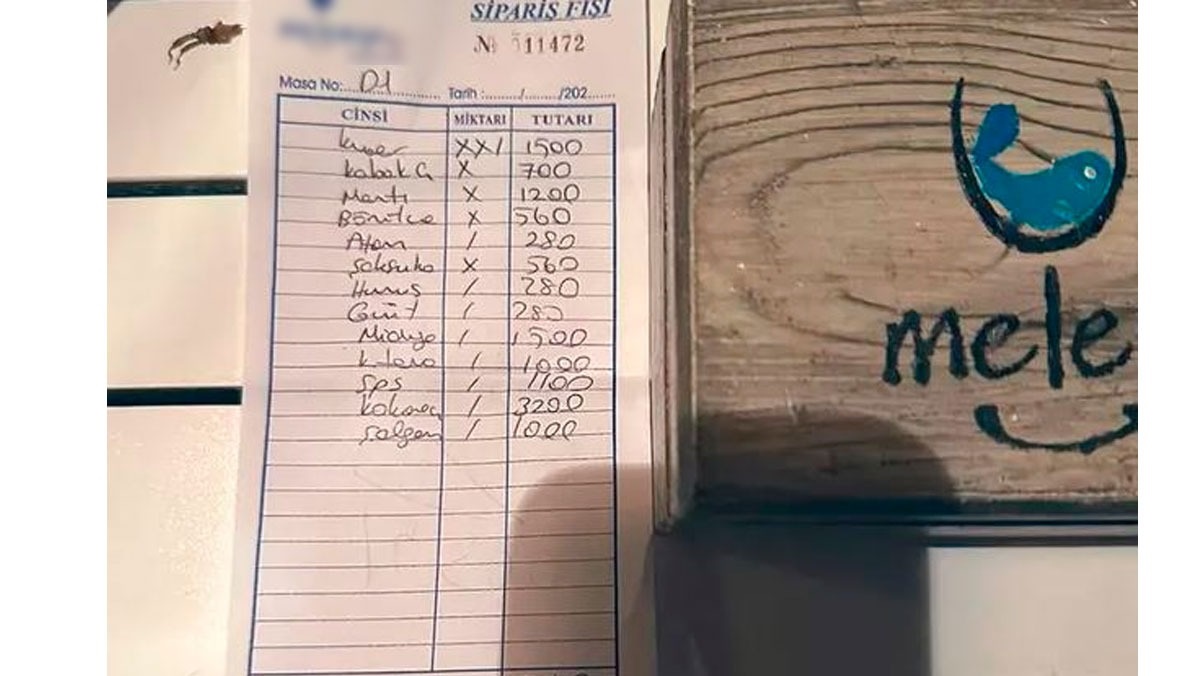 SİPARİŞ FİŞİ
№ 511472
Masa No: 01 Tarih : / /202
CİNSİ MİKTARI TUTARI
kuver XX/ 1500
kabak Ç X 700
Mantı X 1200
Börülce X 560
Atom / 280
şakşuka X 560
Humus / 280
Girit / 280
Midye / 1500
/ 1000
/ 1100
kokoreç / 3200
şalgam / 1000
mele